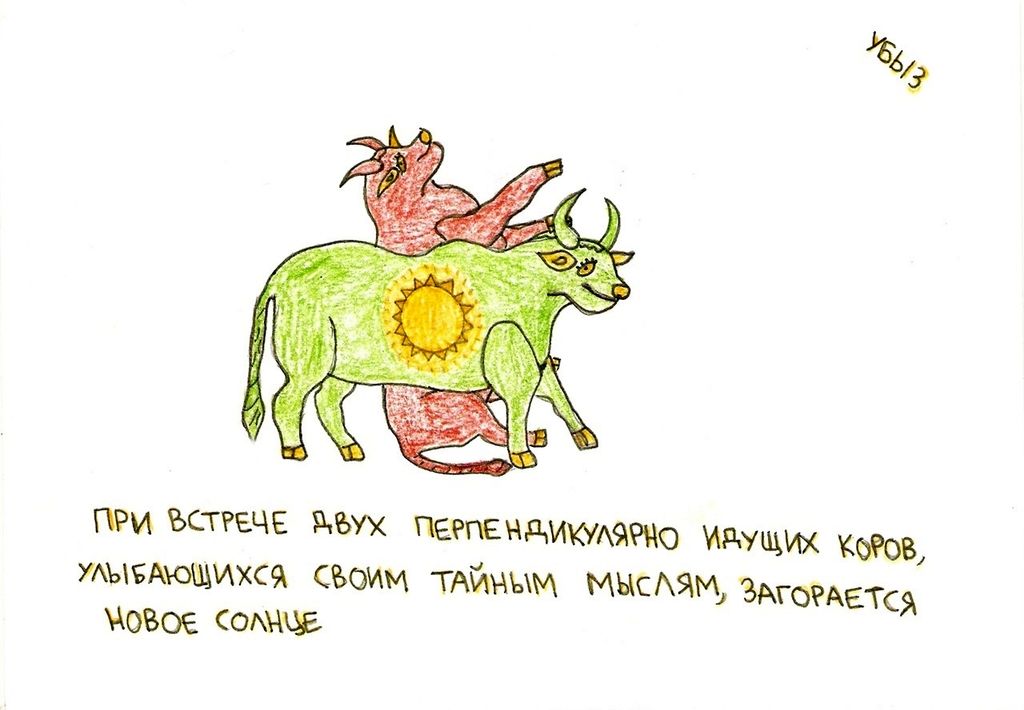 УБЫЗ
ПРИ ВСТРЕЧЕ ДВУХ ПЕРПЕНДИКУЛЯРНО ИДУЩИХ КОРОВ,
УЛЫБАЮЩИХСЯ СВОИМ ТАЙНЫМ МЫСЛЯМ, ЗАГОРАЕТСЯ
НОВОЕ СОЛНЦЕ